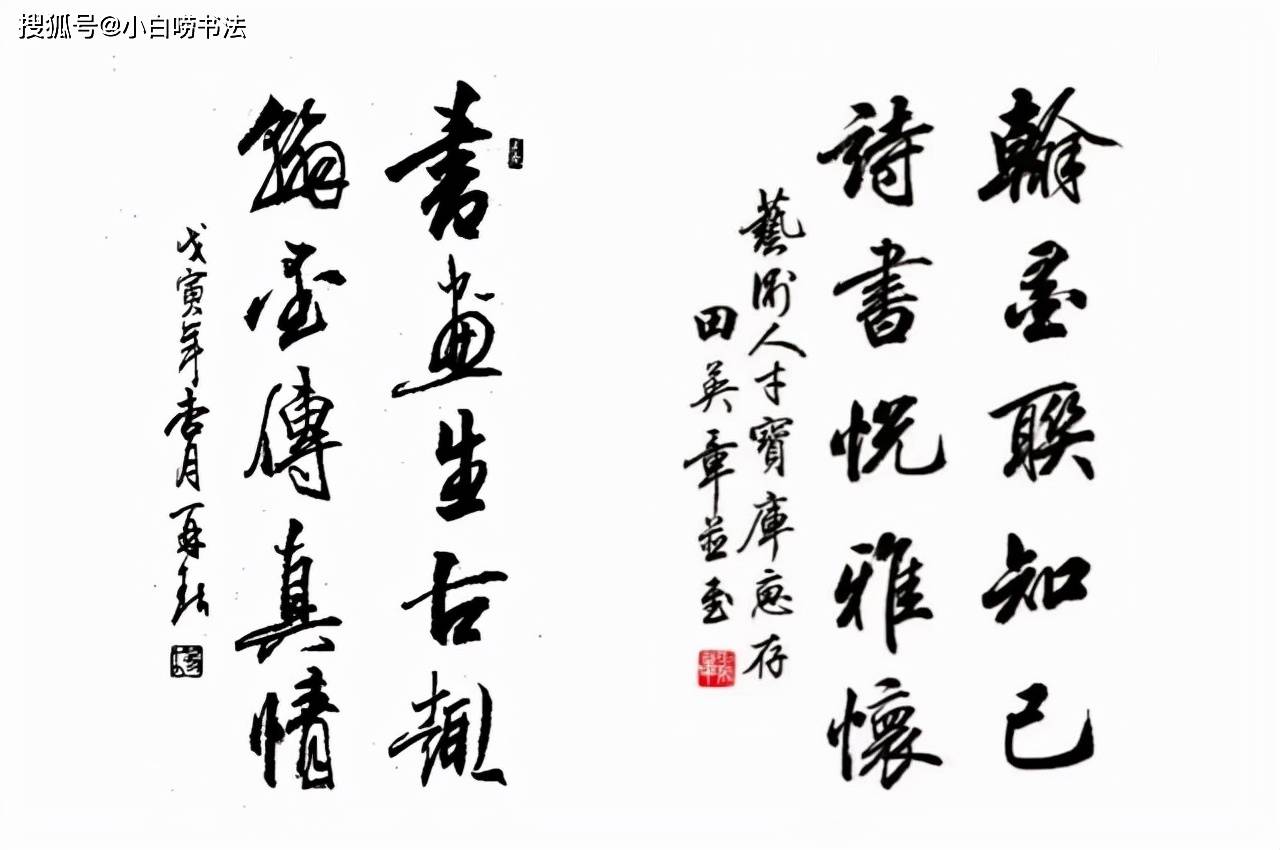 搜狐号@小白唠书法
書畫生古趣
翰墨傳真情
戊寅年杏月再新
翰墨聯知己
詩書悦雅懷
藝術人才寶庫惠存
田英章並書